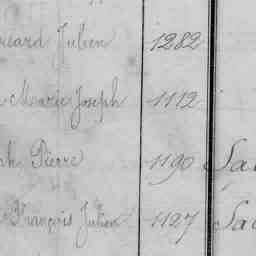 Julien 1282
Marie Joseph 1112
Pierre 1190
François Julien 1127